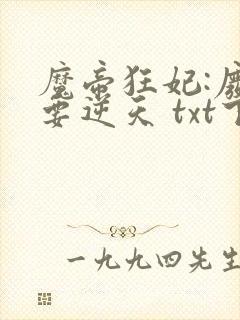 魔帝狂妃:廢
要逆天 txt下
一九九四先生